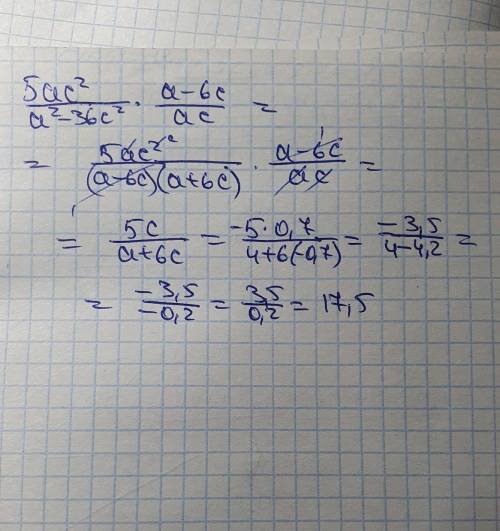 5ac²/(a²-36c²) · (a-6c)/(ac) =
= 5ac²/((a-6c)(a+6c)) · (a-6c)/(ac) =
= 5c/(a+6c) = -5·0,7/(4+6(-0,7)) = -3,5/(4-4,2) =
= -3,5/-0,2 = 35/0,2 = 17,5